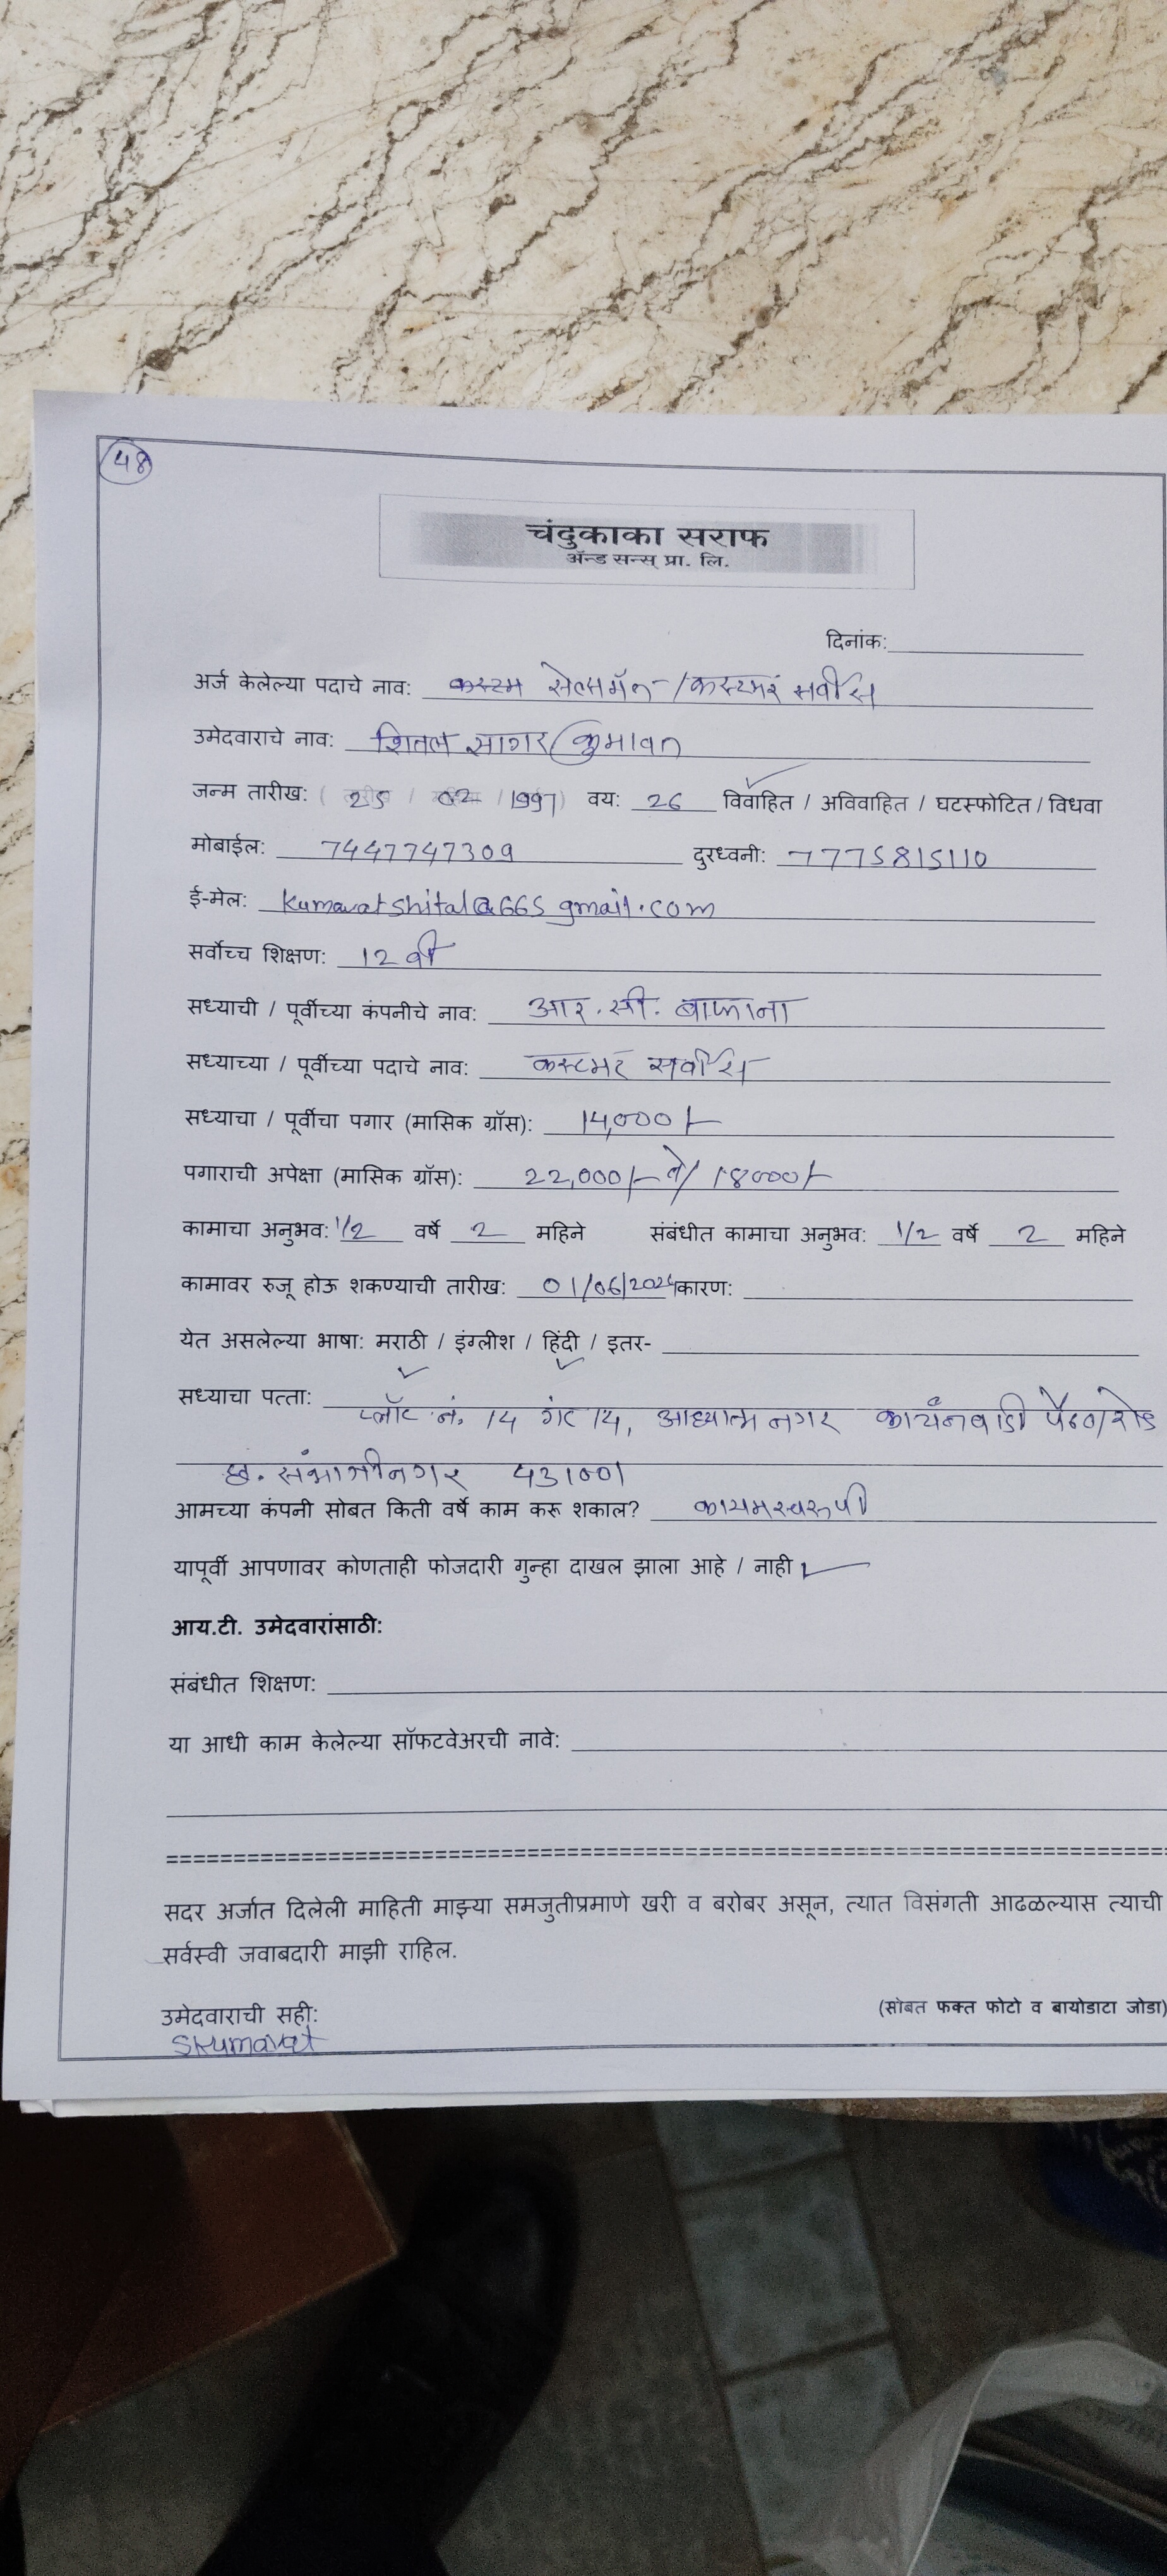 48
चंदुकाका सराफ
ॲन्ड सन्स् प्रा. लि.
दिनांक:
अर्ज केलेल्या पदाचे नाव: सेल्समॅन /कस्टमर सर्वीस
उमेदवाराचे नाव: शितल सागर कुमावत
जन्म तारीख: ( 25 / 02 / 1997) वय: 26 विवाहित / अविवाहित / घटस्फोटित / विधवा
मोबाईल: 7447747309 दुरध्वनी: 7775815110
ई-मेल: kumavatshital@665 gmail.com
सर्वोच्च शिक्षण: 12 वी
सध्याची / पूर्वीच्या कंपनीचे नाव: आर. सी. बाफना
सध्याच्या / पूर्वीच्या पदाचे नाव: कस्टमर सर्वीस
सध्याचा / पूर्वीचा पगार (मासिक ग्रॉस): 14,000/-
पगाराची अपेक्षा (मासिक ग्रॉस): 22,000/- ते/ 18000/-
कामाचा अनुभव: 1/2 वर्षे 2 महिने संबंधीत कामाचा अनुभव: 1/2 वर्षे 2 महिने
कामावर रुजू होऊ शकण्याची तारीख: 01/06/2024 कारण:
येत असलेल्या भाषा: मराठी / इंग्लीश / हिंदी / इतर-
सध्याचा पत्ता: प्लॉट नं. 14 गट 14, आध्यात्म नगर पैठण रोड
छ. संभाजीनगर 431001
आमच्या कंपनी सोबत किती वर्षे काम करू शकाल? कायमस्वरुपी
यापूर्वी आपणावर कोणताही फोजदारी गुन्हा दाखल झाला आहे / नाही
आय.टी. उमेदवारांसाठी:
संबंधीत शिक्षण:
या आधी काम केलेल्या सॉफटवेअरची नावे:
सदर अर्जात दिलेली माहिती माझ्या समजुतीप्रमाणे खरी व बरोबर असून, त्यात विसंगती आढळल्यास त्याची
सर्वस्वी जवाबदारी माझी राहिल.
उमेदवाराची सही: (सोबत फक्त फोटो व बायोडाटा जोडा)
Skumavat